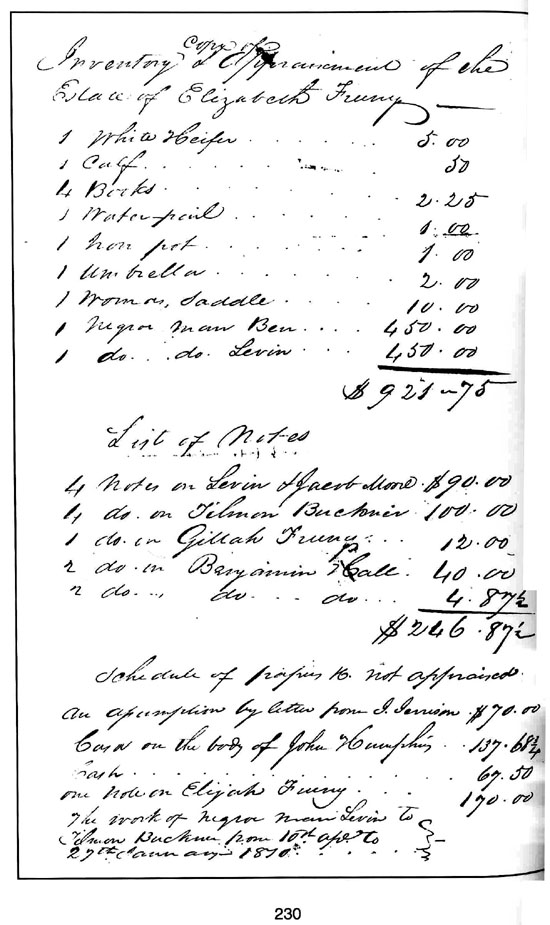 Copy of
Inventory & Appraisement of the
Estate of Elizabeth Frurny
1 White Heifer 5.00
1 Calf 50
4 Books 2.25
1 Water pail 1.00
1 Iron pot 1.00
1 Umbrella 2.00
1 Womans Saddle 10.00
1 Negroe man Ben 450.00
1 do. do. Levin 450.00
$921-75
List of Notes
4 Notes on Levin & Jacob Moore $90.00
4 do. on Tilmon Buckner 100.00
1 do. on Gillah 12.00
2 do. on Benjamin Hall 40.00
2 do. do do 4.87½
$246.87½
Schedule of papers &c. not appraised
An assumption by letter from J. $70.00
Casa on the body of John Humphris 137.68¼
Cash 67.50
one Note on Elijah 170.00
The work of negroe man Levin to
Tilmon Buckner from 10th to
27th January 1810
230